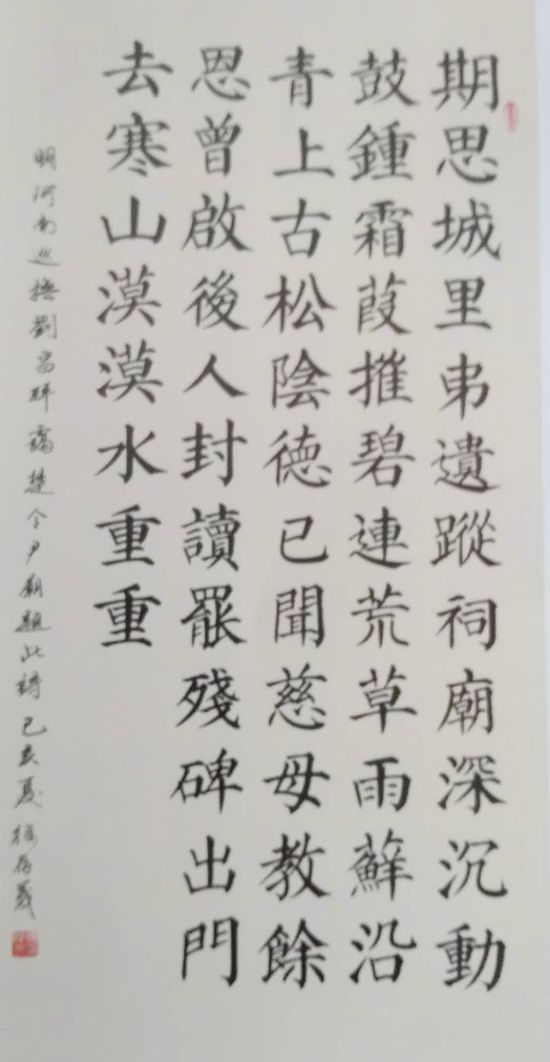 期思城里弔遺蹤祠廟深沉動
鼓鍾霜葭摧碧連荒草雨蘚沿
青上古松陰德已聞慈母教餘
恩曾啟後人封讀罷殘碑出門
去寒山漠漠水重重
明河南巡撫劉昌拜謁楚令尹廟題此詩己亥夏存義